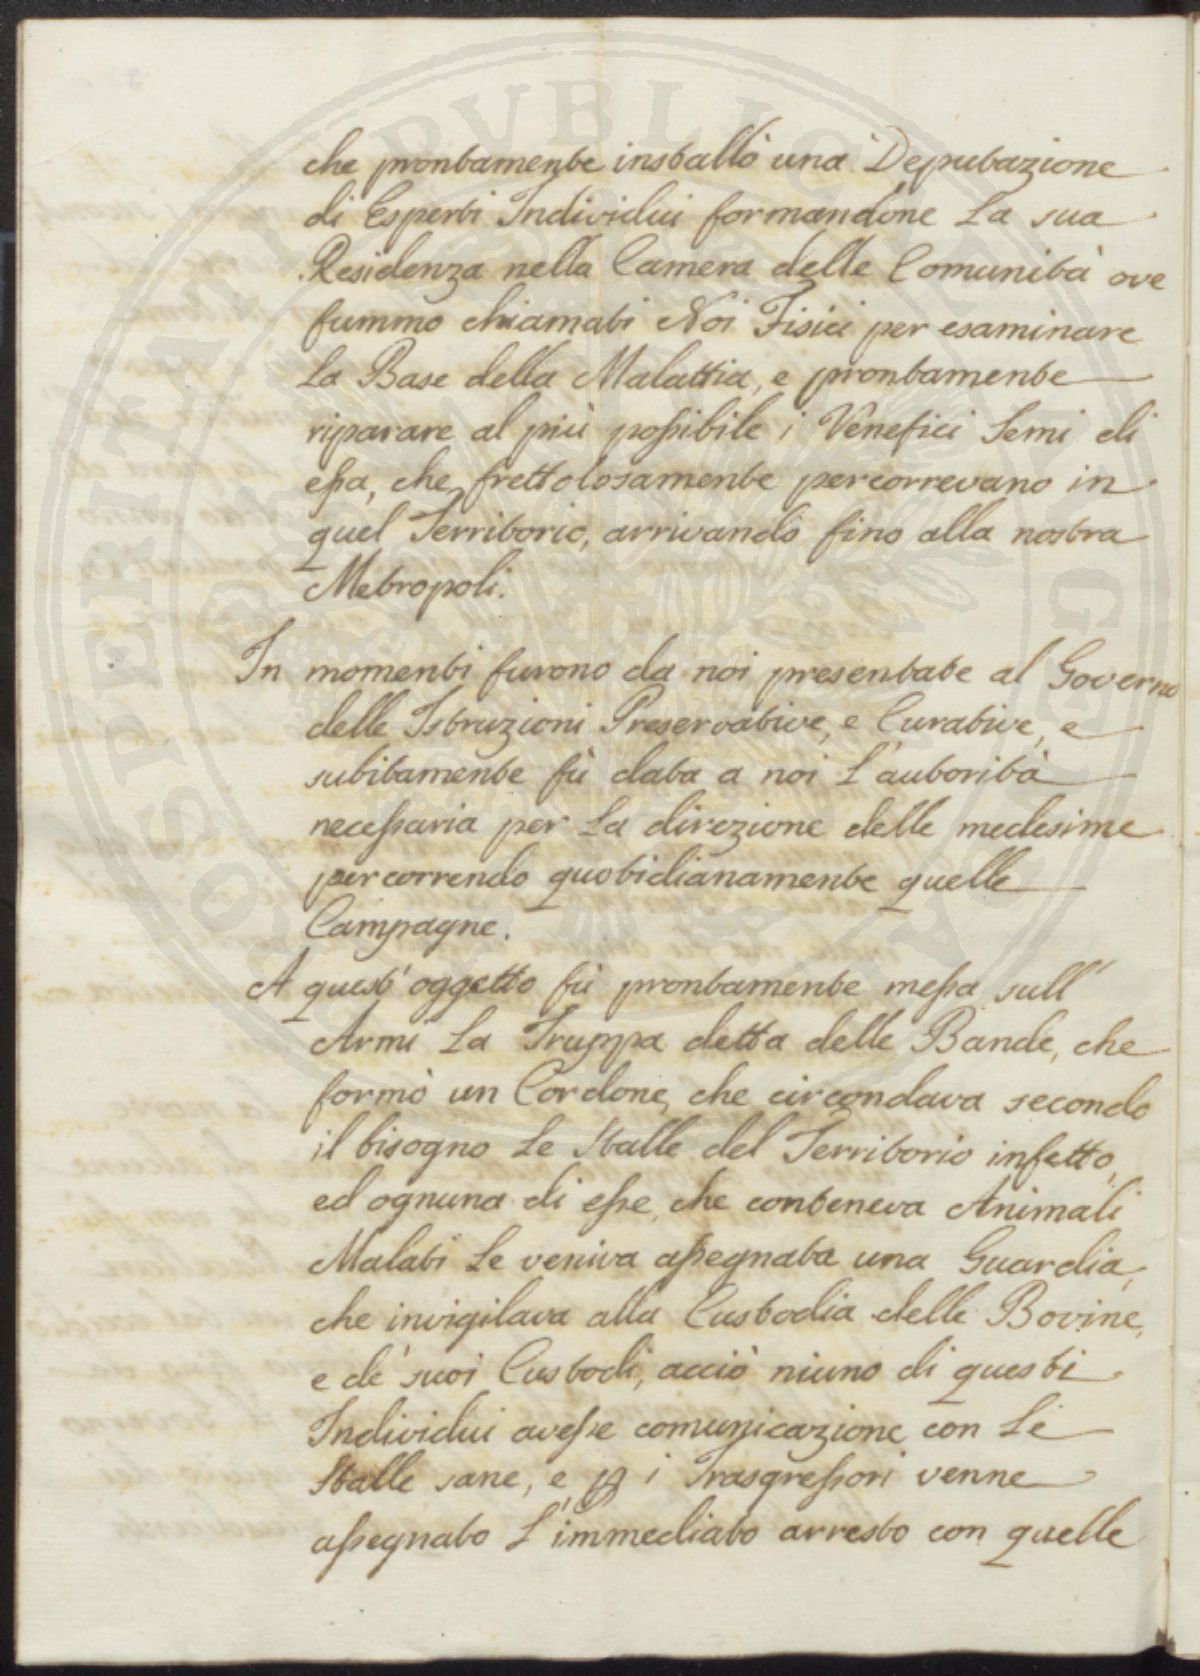 che prontamente installò una Deputazione
di Esperti Individui formandone la sua
Residenza nella Camera delle Comunità ove
fummo chiamati Noi Fisici per esaminare
la Base della Malattia, e prontamente
riparare al più possibile i Venefici Semi di
essa, che frettolosamente percorrevano in
quel Territorio, arrivando fino alla nostra
Metropoli.
In momenti furono da noi presentate al Governo
delle Istruzioni Preservative, e Curative, e
subitamente fù data a noi l'autorità
necessaria per la direzione delle medesime
percorrendo quotidianamente quelle
Campagne.
A quest'oggetto fù prontamente messa sull'
Armi la Truppa detta delle Bande, che
formò un Cordone, che circondava secondo
il bisogno le Stalle del Territorio infetto,
ed ognuna di esse, che conteneva Animali
Malati le veniva assegnata una Guardia,
che invigilava alla Custodia delle Bovine,
e de' suoi Custodi, acciò niuno di questi
Individui avesse comunicazione con le
Stalle sane, e i Trasgressori venne
assegnato l'immediato arresto con quelle